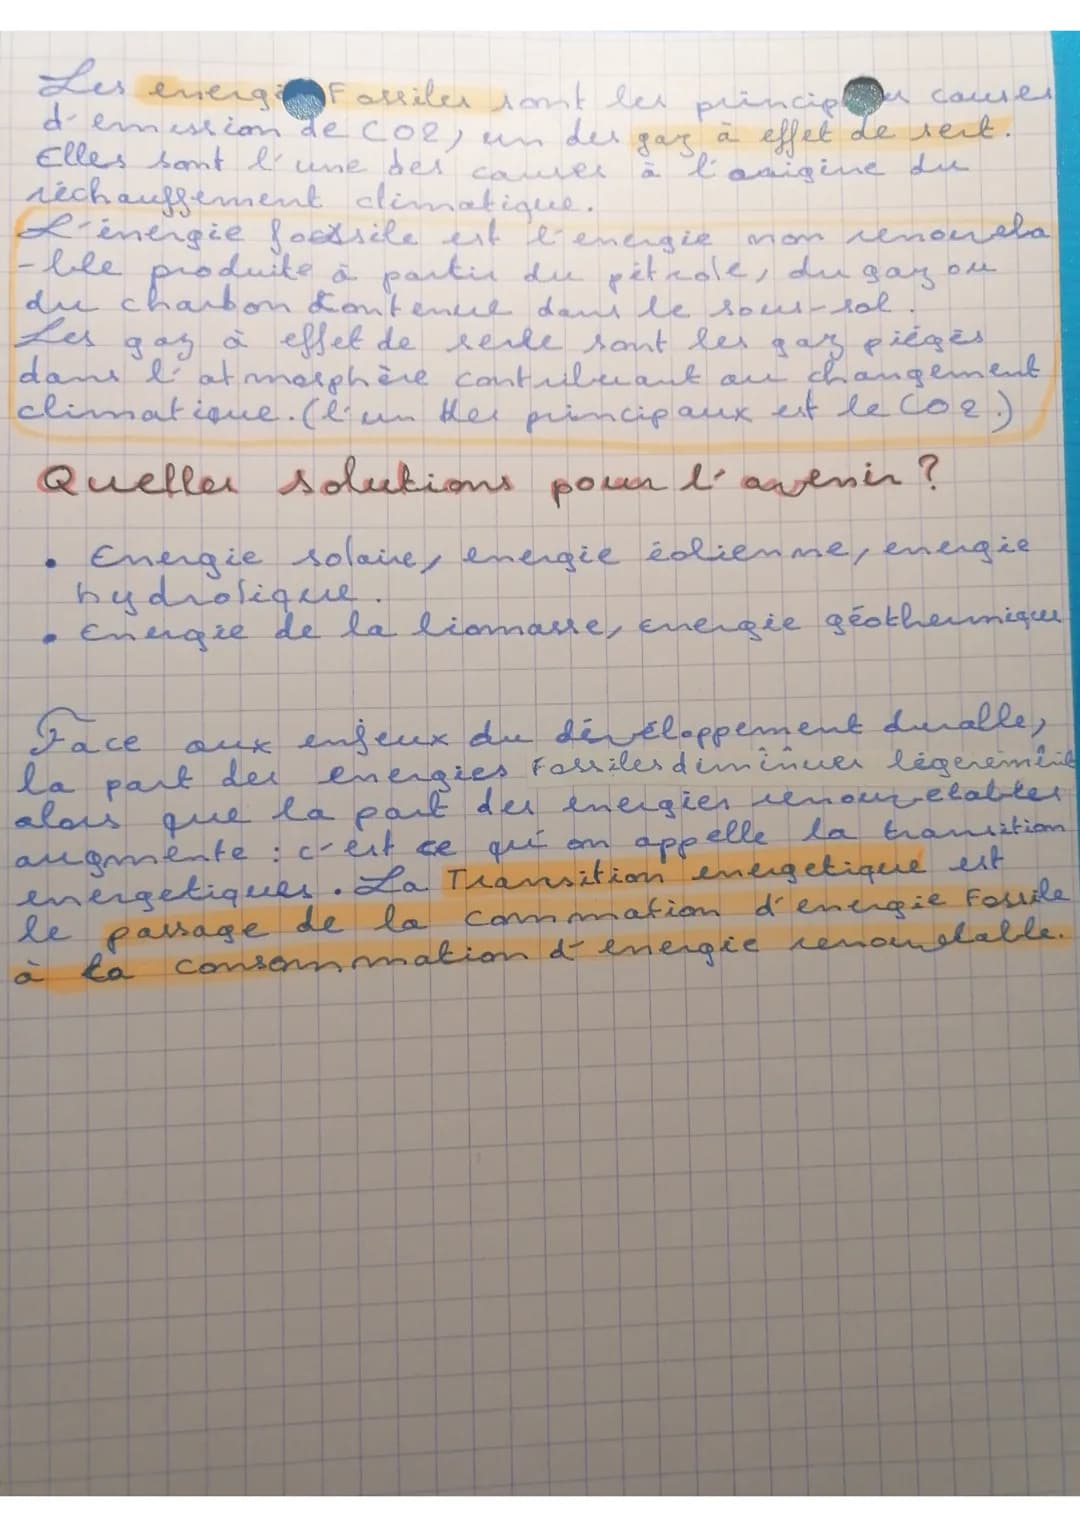 Les energi Fossiles sont les princip es causes
d'emission de CO2, un des gaz à effet de sert.
Elles sont l'une des causes à l'origine du
réchauffement climatique.
L'énergie fossile est l'energie non renouvela
-ble produite à partir du pétrole, du gaz ou
du charbon contenue dans le sous-sol.
Les gaz à effet de serre sont les gaz piégés
dans l'atmosphère contribuant au changement
climatique. (l'un des principaux est le CO2.)
Quelles solutions pour l'avenir ?
• Energie solaire, energie éolienne, energie
hydrolique.
• Energie de la biomasse, energie géothermique
Face aux enjeux du dévéloppement durable,
la part des energies Fossiles diminuer légerement
alors que la part des énergies renouvelables
augmente : c'est ce qui on appelle la transition
energetiques. La Transition energetique est
le passage de la commation d'energie Fossile
à la consommmation d'energie renouvelable.